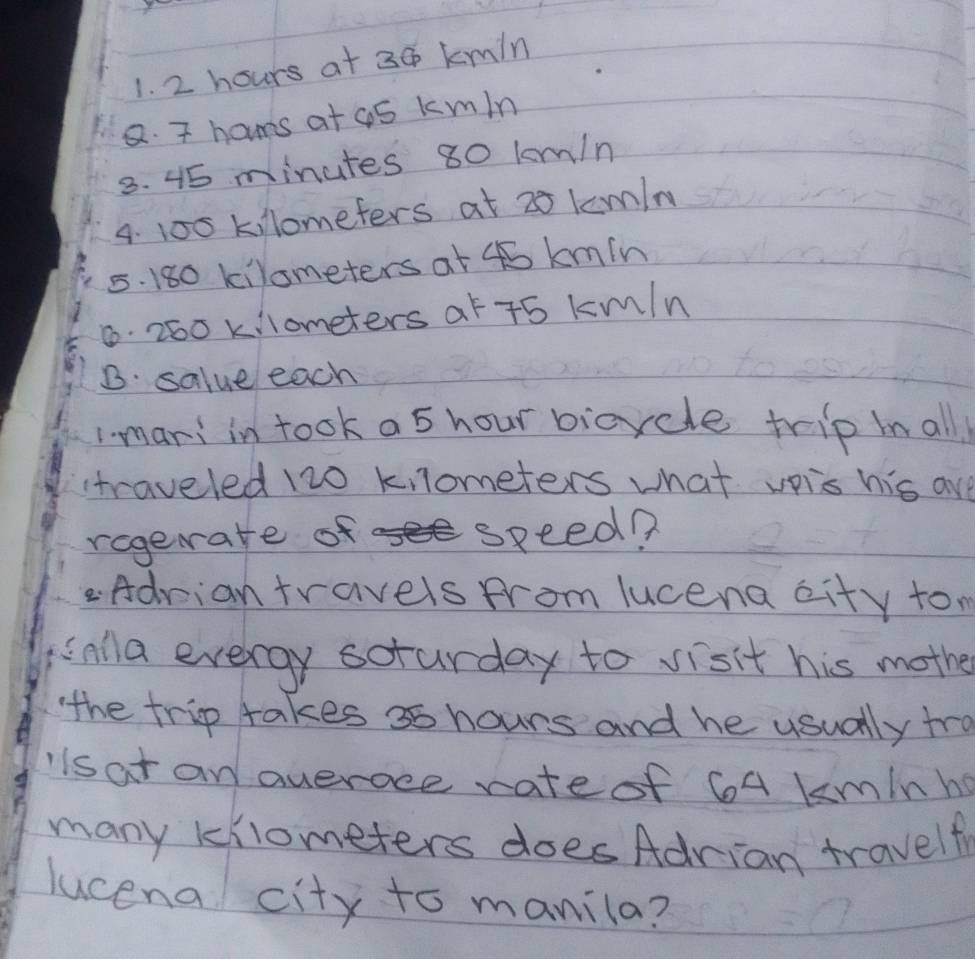 1. 2 hours at 36 km/n
2. 7 hams at 45 km/n
3. 45 minutes 80 km/n
4. 100 kilometers at 20 km/n
5. 180 kilometers at 45 km/n
6. 250 kilometers at 75 km/n
B. salue each
1. mari in took a 5 hour bicycle trip in all
traveled 120 kilometers what his ave
ragerate of speed?
2. Adrian travels from lucena city to m
evergy soturday to visit his mother
the trip takes hours and he usually tra
ls at an averace rate of 64 km/n ho
many kilometers does Adrian travel
lucena city to manila?